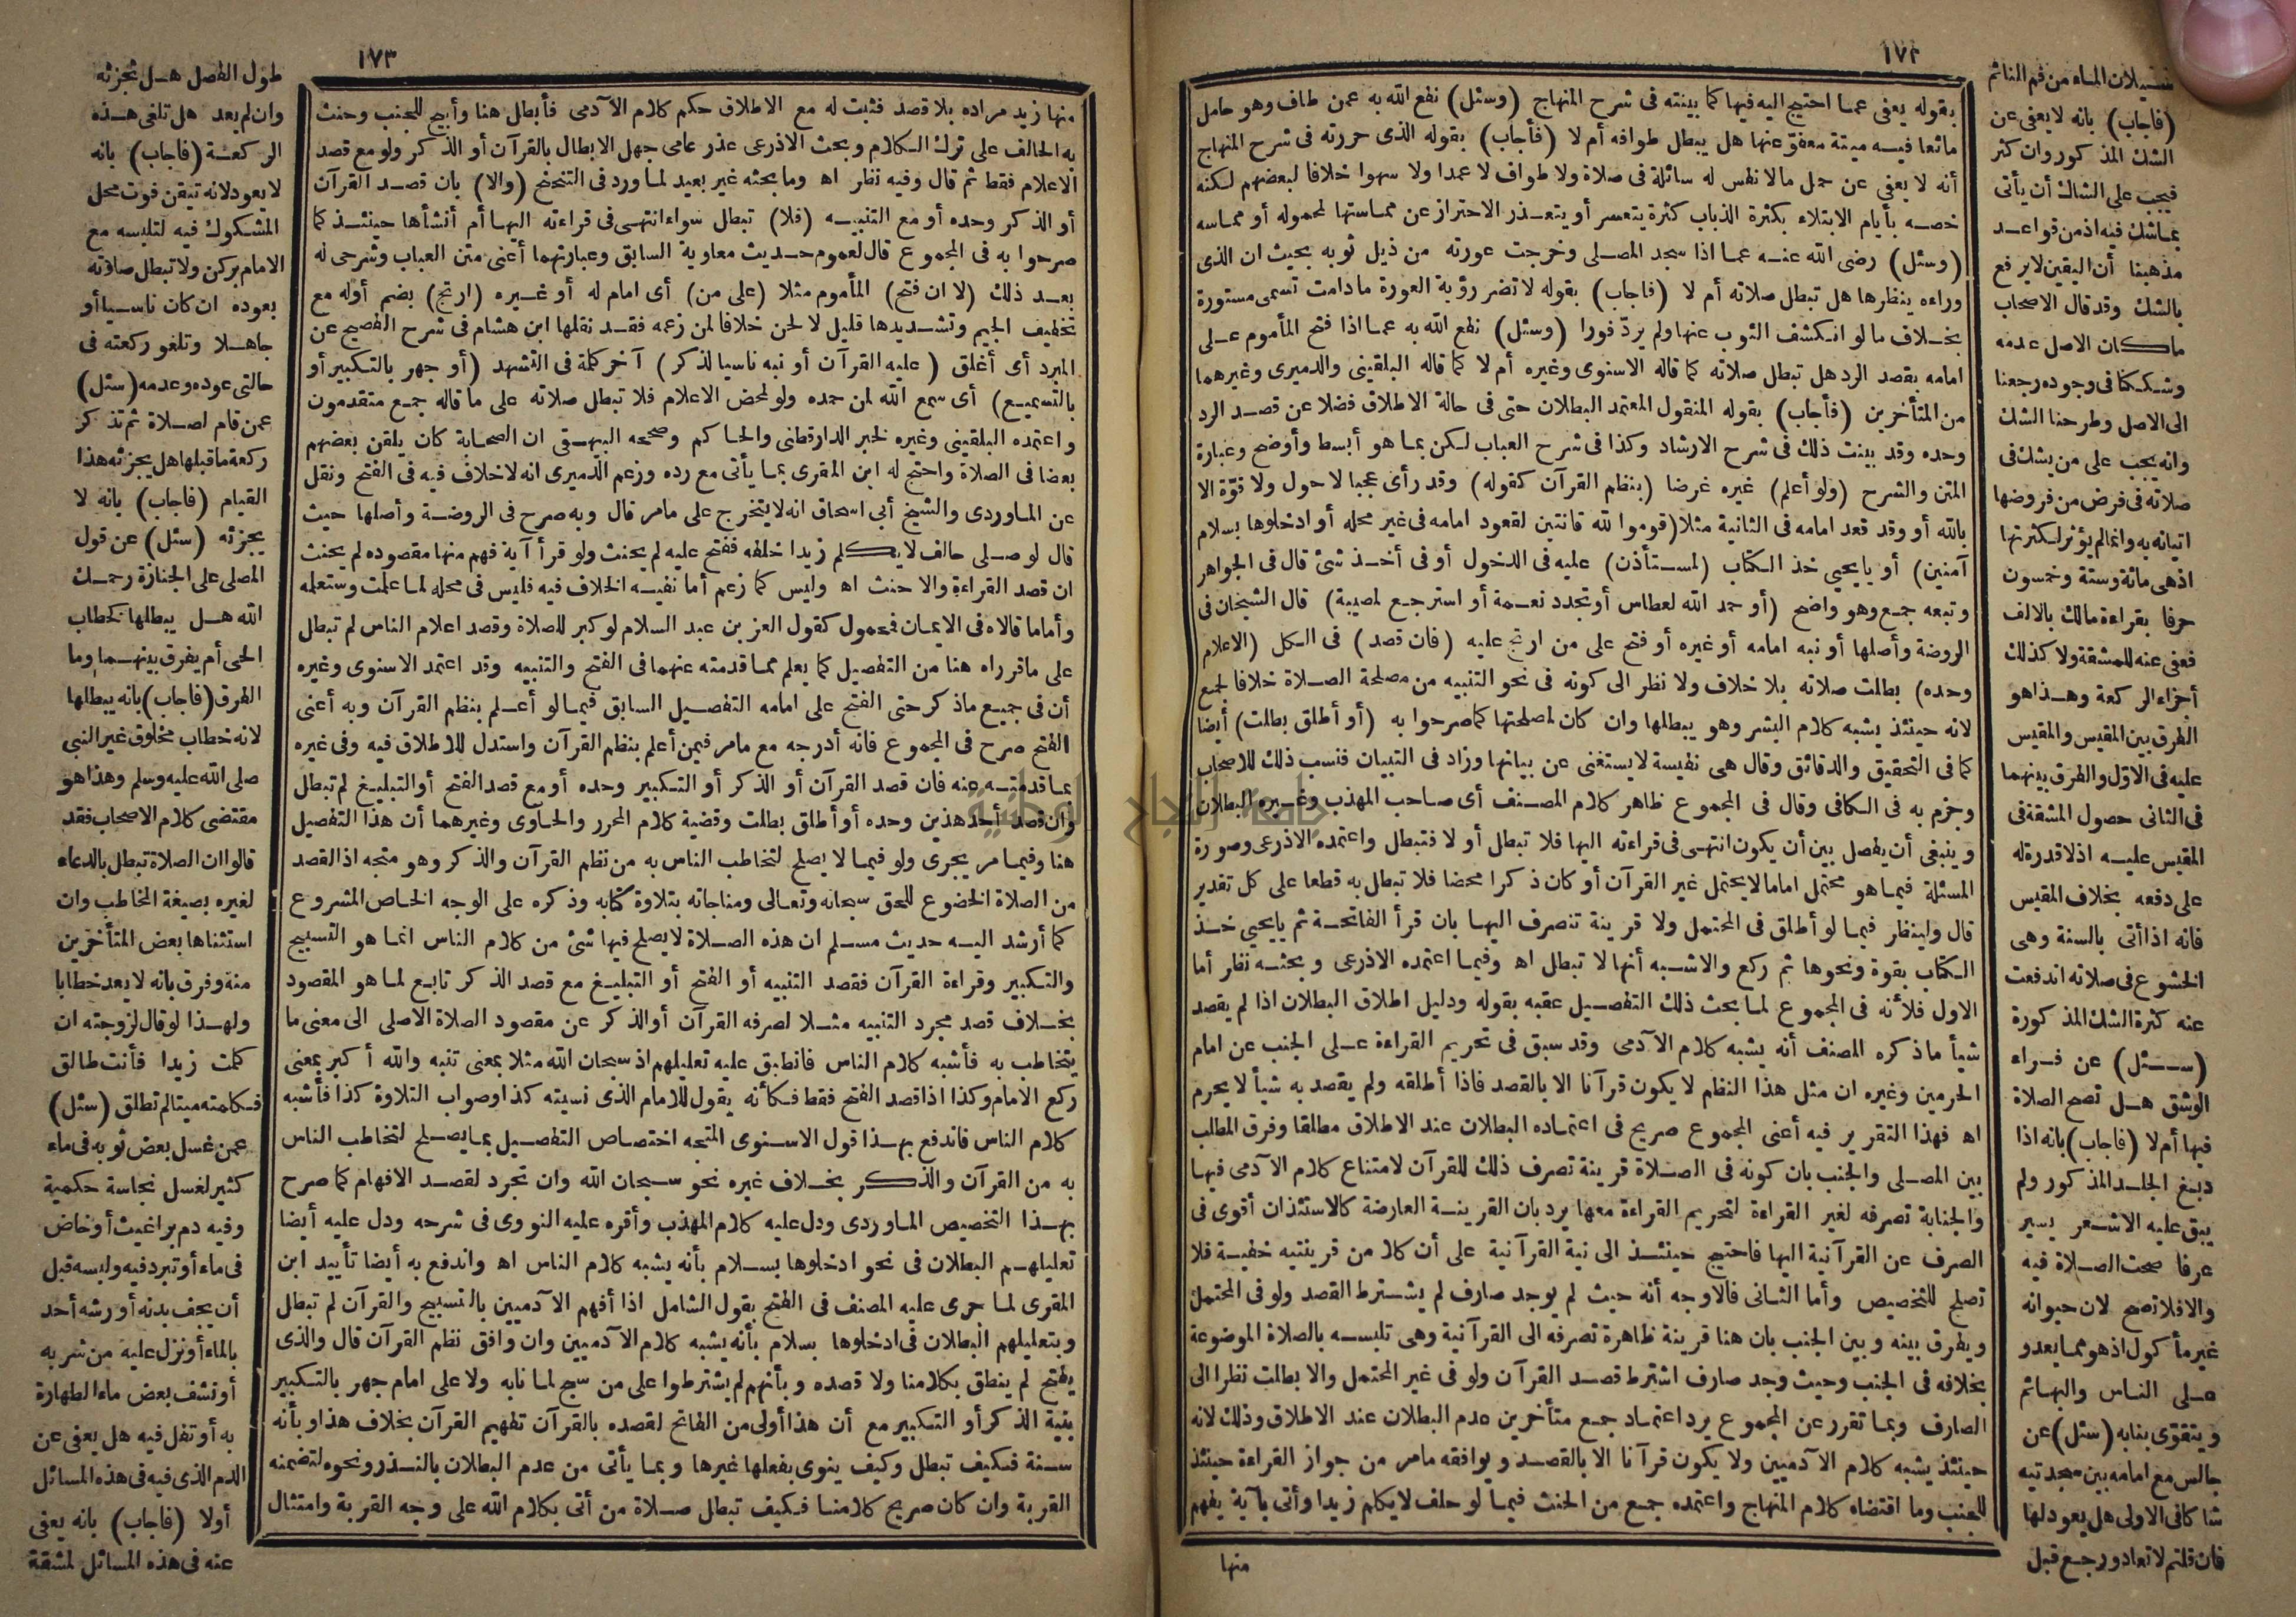 ١٧٢
بقوله يعفى عما احتيج اليه فيها كما بينته فى شرح المنهاج (وسئل) نفع الله به عمن طاف وهو حامل
مائعا فيه ميتة معفو عنها هل يبطل طوافه أم لا (فأجاب) بقوله الذى حررته فى شرح المنهاج
أنه لا يعفى عن حمل مالا نفس له سائلة فى صلاة ولا طواف لا عمدا ولا سهوا خلافا لبعضهم لكنه
خصه بأيام الابتلاء بكثرة الذباب كثرة يتعسر أو يتعذر الاحتراز عن مماستها لمحموله أو مماسه
(وسئل) رضى الله عنه عما اذا سجد المصلى وخرجت عورته من ذيل ثوبه بحيث ان الذى
وراءه ينظرها هل تبطل صلاته أم لا (فاجاب) بقوله لا تضر رؤية العورة مادامت تسمى مستورة
بخلاف ما لو انكشف الثوب عنها ولم يرد فورا (وسئل) نفع الله به عما اذا فتح المأموم على
امامه بقصد الرد هل تبطل صلاته كما قاله الاسنوى وغيره أم لا كما قاله البلقينى والدميرى وغيرهما
من المتأخرين (فأجاب) بقوله المنقول المعتمد البطلان حتى فى حالة الاطلاق فضلا عن قصد الرد
وحده وقد بينت ذلك فى شرح الارشاد وكذا فى شرح العباب لكن بما هو أبسط وأوضح وعبارة
المتن والشرح (ولو أعلم) غيره غرضا (بنظم القرآن كقوله) وقد رأى عجبا لا حول ولا قوة الا
بالله أو وقد قعد امامه فى الثانية مثلا (قوموا لله قانتين لقعود امامه فى غير محله أو ادخلوها بسلام
آمنين) أو يايحيى خذ الكتاب (لمستأذن) عليه فى الدخول أو فى أخذ شئ قال فى الجواهر
وتبعه جمع وهو واضح (أو حمد الله لعطاس أو تجدد نعمة أو استرجع لمصيبة) قال الشيخان فى
الروضة وأصلها أو نبه امامه أو غيره أو فتح على من ارتج عليه (فان قصد) فى الكل (الاعلام
وحده) بطلت صلاته بلا خلاف ولا نظر الى كونه فى نحو التنبيه من مصلحة الصلاة خلافا لجمع
لانه حينئذ يشبه كلام البشر وهو يبطلها وان كان لمصلحتها كما صرحوا به (أو أطلق بطلت) أيضا
كما فى التحقيق والدقائق وقال هى نفيسة لا يستغنى عن بيانها وزاد فى التبيان فنسب ذلك للاصحاب
وجزم به فى الكافى وقال فى المجموع ظاهر كلام المصنف أى صاحب المهذب وغيره البطلان
وينبغى أن يفصل بين أن يكون انتهى فى قراءته اليها فلا تبطل أو لا فتبطل واعتمده الاذرعى وصورة
المسئلة فيما هو محتمل اما مالا يحتمل غير القرآن أو كان ذكرا محضا فلا تبطل به قطعا على كل تقدير
قال ولينظر فيما لو أطلق فى المحتمل ولا قرينة تنصرف اليها بان قرأ الفاتحة ثم يايحيى خذ
الكتاب بقوة ونحوها ثم ركع والاشبه أنها لا تبطل اه وفيما اعتمده الاذرعى وبحثه نظر أما
الاول فلأنه فى المجموع لما بحث ذلك التفصيل عقبه بقوله ودليل اطلاق البطلان اذا لم يقصد
شيأ ماذكره المصنف أنه يشبه كلام الآدمى وقد سبق فى تحريم القراءة على الجنب عن امام
الحرمين وغيره ان مثل هذا النظم لا يكون قرآنا الا بالقصد فاذا أطلقه ولم يقصد به شيأ لا يحرم
اه فهذا التقرير فيه أعنى المجموع صريح فى اعتماده البطلان عند الاطلاق مطلقا وفرق المطلب
بين المصلى والجنب بان كونه فى الصلاة قرينة تصرف ذلك للقرآن لامتناع كلام الآدمى فيها
والجنابة تصرفه لغير القراءة لتحريم القراءة معها يرد بان القرينة العارضة كالاستئذان أقوى فى
الصرف عن القرآنية اليها فاحتيج حينئذ الى نية القرآنية على أن كلا من قرينتيه خفية فلا
تصلح للتخصيص وأما الثانى فالاوجه أنه حيث لم يوجد صارف لم يشترط القصد ولو فى المحتمل
ويفرق بينه وبين الجنب بان هنا قرينة ظاهرة تصرفه الى القرآنية وهى تلبسه بالصلاة الموضوعة
بخلافه فى الجنب وحيث وجد صارف اشترط قصد القرآن ولو فى غير المحتمل والا بطلت نظرا الى
الصارف وبما تقرر عن المجموع يرد اعتماد جمع متأخرين عدم البطلان عند الاطلاق وذلك لانه
حينئذ يشبه كلام الآدميين ولا يكون قرآنا الا بالقصد ويوافقه مامر من جواز القراءة حينئذ
للجنب وما اقتضاه كلام المنهاج واعتمده جمع من الحنث فيما لو حلف لا يكلم زيدا وأتى بآية يفهم
منها
سيلان الماء من فم النائم
(فاجاب) بانه لا يعفى عن
الشك المذكور وان كثر
فيجب على الشاك أن يأتى
بما شك فيه اذ من قواعد
مذهبنا أن اليقين لا يرفع
بالشك وقد قال الاصحاب
ما كان الاصل عدمه
وشككنا فى وجوده رجعنا
الى الاصل وطرحنا الشك
وانه يجب على من يشك فى
صلاته فى فرض من فروضها
اتيانه به وانما لم يؤثر لكثرتها
اذ هى مائة وستة وخمسون
حرفا بقراءة مالك بالالف
فعفى عنه للمشقة ولا كذلك
أجزاء الركعة وهذا هو
الفرق بين المقيس والمقيس
عليه فى الاول والفرق بينهما
فى الثانى حصول المشقة فى
المقيس عليه اذ لا قدرة له
على دفعه بخلاف المقيس
فانه اذا أتى بالسنة وهى
الخشوع فى صلاته اندفعت
عنه كثرة الشك المذكورة
(سئل) عن فراء
الوشق هل تصح الصلاة
فيها أم لا (فاجاب) بانه اذا
دبغ الجلد المذكور ولم
يبق عليه الا شعر يسير
عرفا صحت الصلاة فيه
والا فلا تصح لان حيوانه
غير مأكول اذ هو مما يعدو
على الناس والبهائم
ويتقوى بنابه (سئل) عن
جالس مع امامه بين سجدتيه
شاكا فى الاولى هل يعود لها
فان قلتم لا تعاد ورجع قبل
١٧٣
منها زيد مراده بلا قصد فثبت له مع الاطلاق حكم كلام الآدمى فأبطل هنا وأبيح للجنب وحنث
به الحالف على ترك الكلام وبحث الاذرعى عذر عامى جهل الابطال بالقرآن أو الذكر ولو مع قصد
الاعلام فقط ثم قال وفيه نظر اه وما بحثه غير بعيد لما ورد فى التنحنح (والا) بان قصد القرآن
أو الذكر وحده أو مع التنبيه (فلا) تبطل سواء انتهى فى قراءته اليها أم أنشأها حينئذ كما
صرحوا به فى المجموع قال لعموم حديث معاوية السابق وعبارتهما أعنى متن العباب وشرحى له
بعد ذلك (لا ان فتح) المأموم مثلا (على من) أى امام له أو غيره (ارتج) بضم أوله مع
تخفيف الجيم وتشديدها قليل لا لحن خلافا لمن زعمه فقد نقلها ابن هشام فى شرح الفصيح عن
المبرد أى أغلق (عليه القرآن أو نبه ناسيا لذكر) آخر كلمة فى التشهد (أو جهر بالتكبير أو
بالتسميع) أى سمع الله لمن حمده ولو لمحض الاعلام فلا تبطل صلاته على ما قاله جمع متقدمون
واعتمده البلقينى وغيره لخبر الدارقطنى والحاكم وصححه البيهقى ان الصحابة كان يلقن بعضهم
بعضا فى الصلاة واحتج له ابن المقرى بما يأتى مع رده وزعم الدميرى انه لا خلاف فيه فى الفتح ونقل
عن الماوردى والشيخ أبى اسحاق انه لا يتخرج على مامر قال وبه صرح فى الروضة وأصلها حيث
قال لو صلى حالف لا يكلم زيدا خلفه ففتح عليه لم يحنث ولو قرأ آية فهم منها مقصوده لم يحنث
ان قصد القراءة والا حنث اه وليس كما زعم أما نفيه الخلاف فيه فليس فى محله لما علمت وستعلمه
وأما ما قالاه فى الايمان فمحمول كقول العز بن عبد السلام لو كبر للصلاة وقصد اعلام الناس لم تبطل
على ماقرراه هنا من التفصيل كما يعلم مما قدمته عنهما فى الفتح والتنبيه وقد اعتمد الاسنوى وغيره
أن فى جميع ماذكر حتى الفتح على امامه التفصيل السابق فيما لو أعلم بنظم القرآن وبه أعنى
الفتح صرح فى المجموع فانه أدرجه مع مامر فيمن أعلم بنظم القرآن واستدل للاطلاق فيه وفى غيره
بما قدمته عنه فان قصد القرآن أو الذكر أو التكبير وحده أو مع قصد الفتح أو التبليغ لم تبطل
وان قصد أحد هذين وحده أو أطلق بطلت وقضية كلام المحرر والحاوى وغيرهما أن هذا التفصيل
هنا وفيما مر يجرى ولو فيما لا يصلح لتخاطب الناس به من نظم القرآن والذكر وهو متجه اذ القصد
من الصلاة الخضوع للحق سبحانه وتعالى ومناجاته بتلاوة كتابه وذكره على الوجه الخاص المشروع
كما أرشد اليه حديث مسلم ان هذه الصلاة لا يصلح فيها شئ من كلام الناس انما هو التسبيح
والتكبير وقراءة القرآن فقصد التنبيه أو الفتح أو التبليغ مع قصد الذكر تابع لما هو المقصود
بخلاف قصد مجرد التنبيه مثلا لصرفه القرآن أو الذكر عن مقصود الصلاة الاصلى الى معنى ما
يتخاطب به فأشبه كلام الناس فانطبق عليه تعليلهم اذ سبحان الله مثلا بمعنى تنبه والله أكبر بمعنى
ركع الامام وكذا اذا قصد الفتح فقط فكأنه يقول للامام الذى نسيته كذا وصواب التلاوة كذا فأشبه
كلام الناس فاندفع بهذا قول الاسنوى المتجه اختصاص التفصيل بما يصلح لتخاطب الناس
به من القرآن والذكر بخلاف غيره نحو سبحان الله وان تجرد لقصد الافهام كما صرح
بهذا التخصيص الماوردى ودل عليه كلام المهذب وأقره عليه النووى فى شرحه ودل عليه أيضا
تعليلهم البطلان فى نحو ادخلوها بسلام بأنه يشبه كلام الناس اه واندفع به أيضا تأييد ابن
المقرى لما جرى عليه المصنف فى الفتح بقول الشامل اذا أفهم الآدميين بالتسبيح والقرآن لم تبطل
وبتعليلهم البطلان فى ادخلوها بسلام بأنه يشبه كلام الآدميين وان وافق نظم القرآن قال والذى
يفتح لم ينطق بكلامنا ولا قصده وبأنهم لم يشترطوا على من سبح لما نابه ولا على امام جهر بالتكبير
بنية الذكر أو التكبير مع أن هذا أولى من الفاتح لقصده بالقرآن تفهيم القرآن بخلاف هذا وبأنه
سنة فكيف تبطل وكيف ينوى بفعلها غيرها وبما يأتى من عدم البطلان بالنذر ونحوه لتضمنه
القربة وان كان صريح كلامنا فكيف تبطل صلاة من أتى بكلام الله على وجه القربة وامتثال
طول الفصل هل تجزئه
وان لم يعد هل تلغى هذه
الركعة (فاجاب) بانه
لا يعود لانه تيقن فوت محل
المشكوك فيه لتلبسه مع
الامام بركن ولا تبطل صلاته
بعوده ان كان ناسيا أو
جاهلا وتلغو ركعته فى
حالتى عوده وعدمه (سئل)
عمن قام لصلاة ثم تذكر
ركعة ما قبلها هل يجزئه هذا
القيام (فاجاب) بانه لا
يجزئه (سئل) عن قول
المصلى على الجنازة رحمك
الله هل يبطلها كخطاب
الحى أم يفرق بينهما وما
الفرق (فاجاب) بانه يبطلها
لانه خطاب مخلوق غير النبى
صلى الله عليه وسلم وهذا هو
مقتضى كلام الاصحاب فقد
قالوا ان الصلاة تبطل بالدعاء
لغيره بصيغة المخاطب وان
استثناها بعض المتأخرين
منه وفرق بانه لا يعد خطابا
ولهذا لو قال لزوجته ان
كلمت زيدا فأنت طالق
فكلمته ميتا لم تطلق (سئل)
عمن غسل بعض ثوبه فى ماء
كثير لغسل نجاسة حكمية
وفيه دم براغيث أو خاض
فى ماء أو تبرد فيه ولبسه قبل
أن يجف بدنه أو رشه أحد
بالماء أو نزل عليه من شربه
أو نشف بعض ماء الطهارة
به أو تفل فيه هل يعفى عن
الدم الذى فيه فى هذه المسائل
أولا (فاجاب) بانه يعفى
عنه فى هذه المسائل لمشقة
جامعة النجاح الوطنية